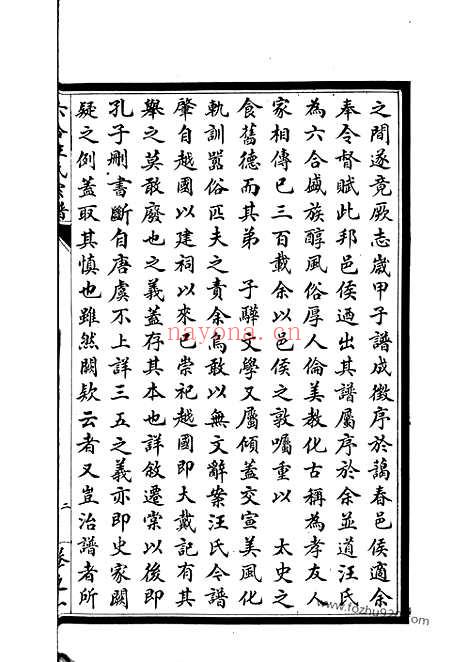 之間遂竟厥志歲甲子譜成徵序於藹春邑侯適余
奉令督賦此邦邑侯迺出其譜屬序於余並道汪氏
為六合盛族醇風俗厚人倫美教化古稱為孝友人
家相傳已三百載余以邑侯之敦囑重以 太史之
食舊德而其弟 子驊文學又屬傾蓋交宣美風化
軌訓嚚俗匹夫之責余烏敢以無文辭案汪氏今譜
肇自越國以建祠以來已崇祀越國即大戴記有其
舉之莫敢廢也之義蓋存其本也詳敘遷棠以後即
孔子刪書斷自唐虞不上詳三五之義亦即史家闕
疑之例蓋取其慎也雖然闕欵云者又豈治譜者所
六合汪氏宗譜
二
卷之一
nayona.cn
www.fozhu920.com